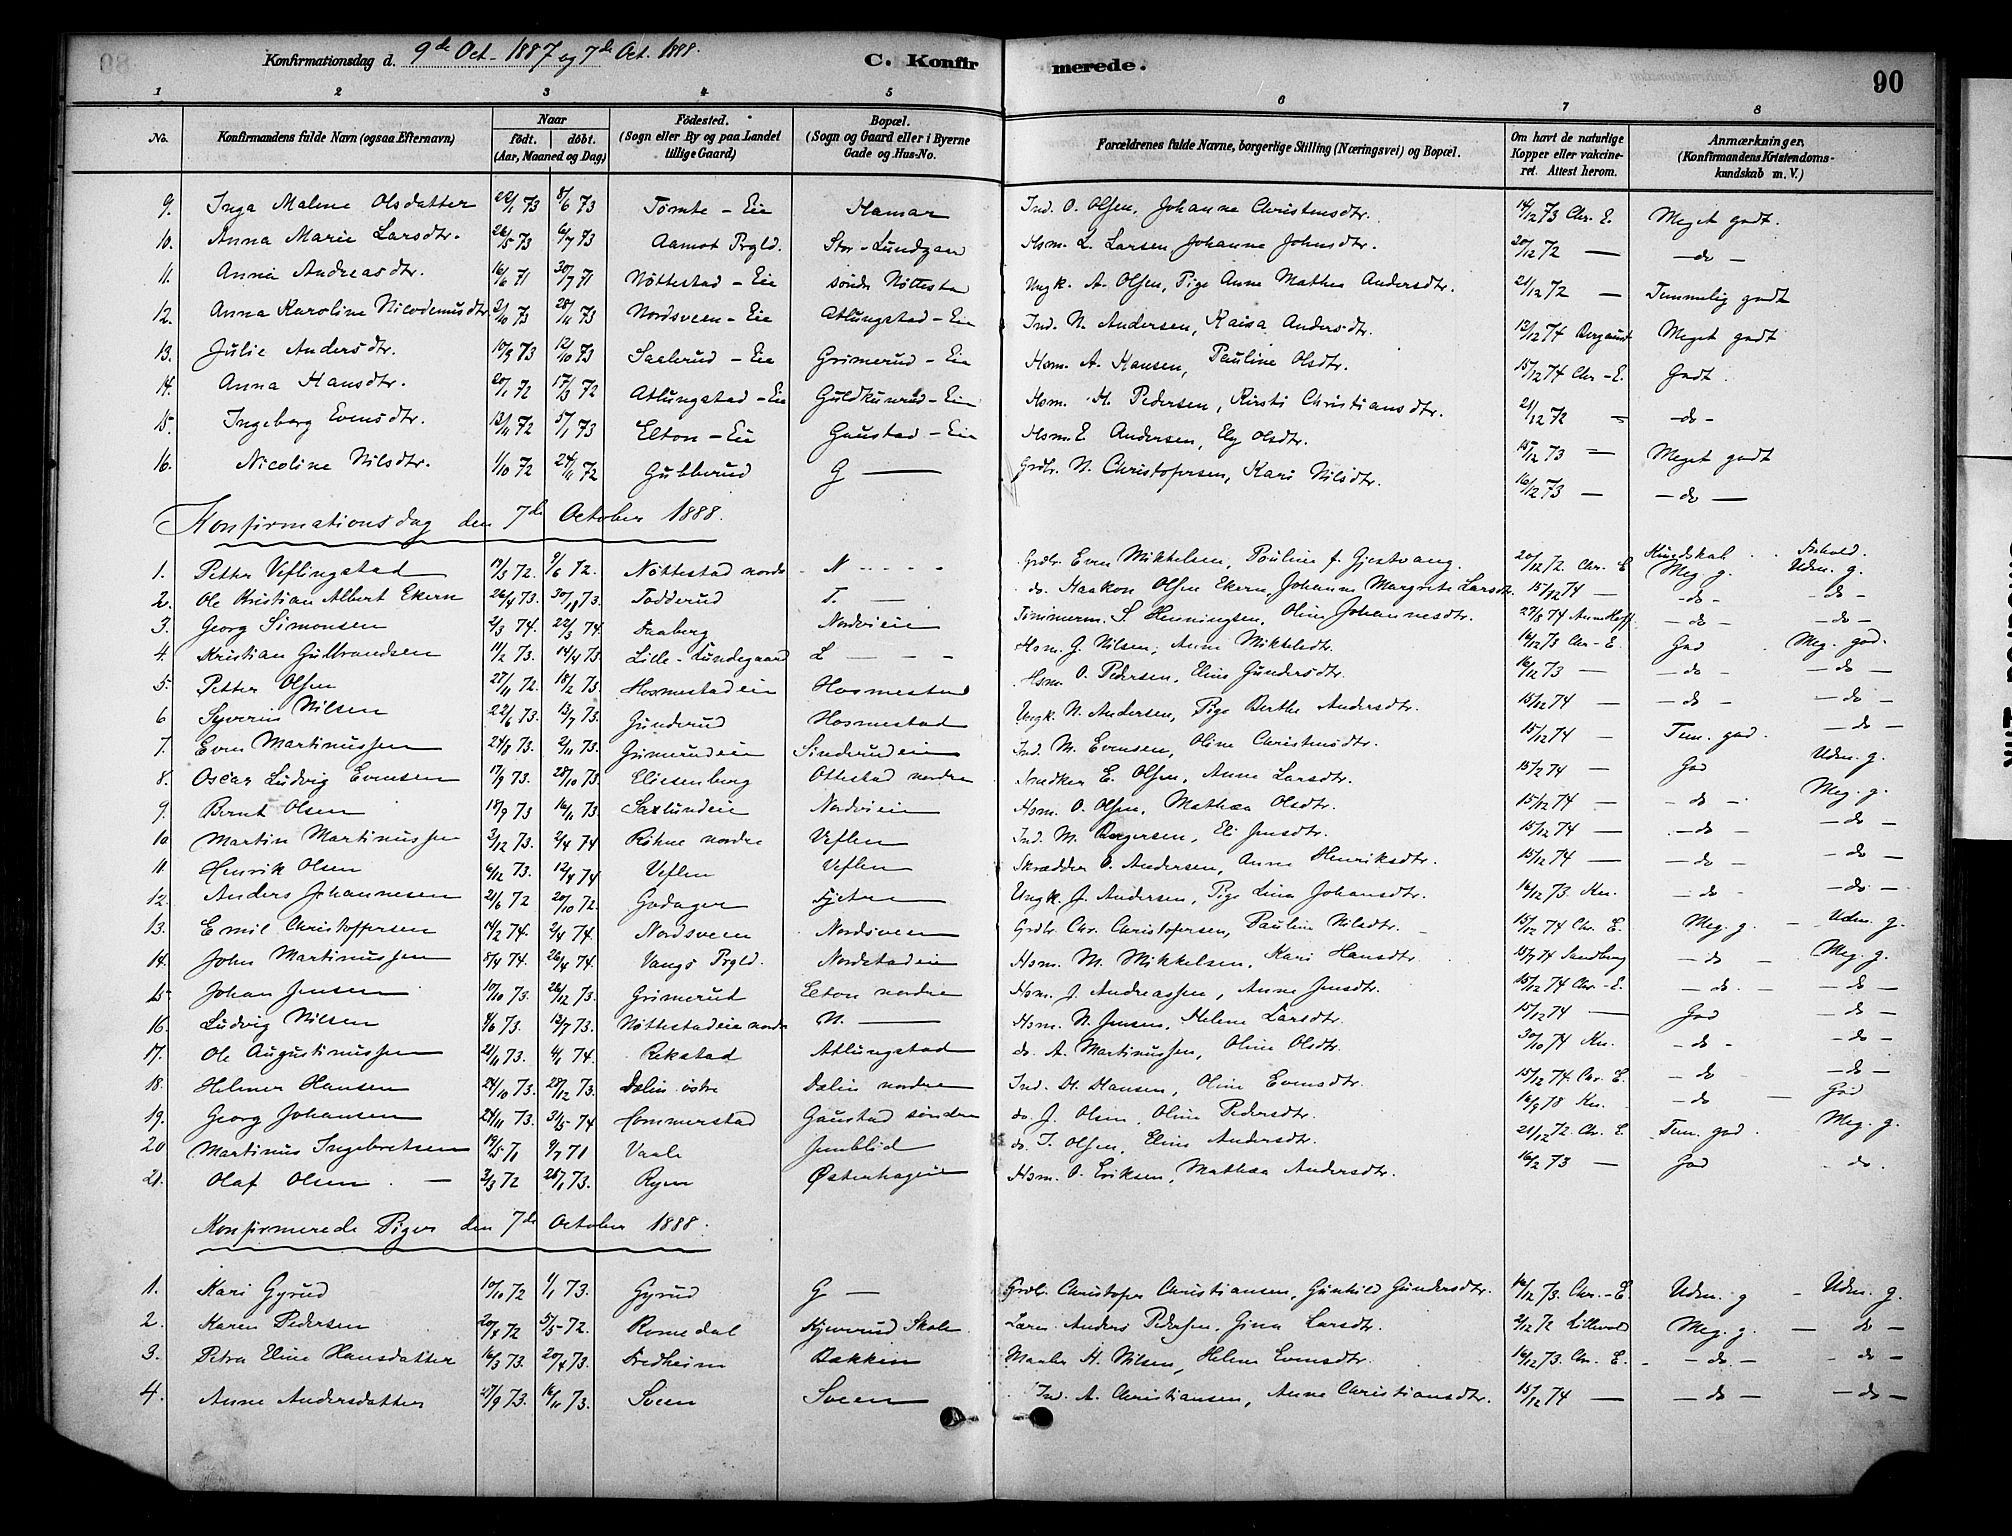 Konfirmationsdag d. 9de Oct. 1887 og 7de Oct. 1888.
C. Konfirmerede.
90
1 2 3 4 5 6 7 8
No. Konfirmandens fulde Navn (ogsaa Efternavn) Naar født. døbt. (Aar, Maaned og Dag) Fødested. (Sogn eller By og paa Landet tillige Gaard) Bopæl. (Sogn og Gaard eller i Byerne Gade og Hus-No. Forældrenes fulde Navne, borgerlige Stilling (Næringsvei) og Bopæl. Om havt de naturlige Kopper eller vakcineret. Attest herom. Anmærkninger, (Konfirmandens Kristendomskundskab m. V.)
9. Inga Malene Olsdatter 22/1 73 8/6 73 Tømte - Eie Hamar Ind. O. Olsen, Johanne Christensdtr. 14/12 73 Chr. E. Meget godt.
10. Anna Marie Larsdtr. 26/5 73 6/7 73 Aamot Prgld. Stor-Lundgaa Hsm. L. Larsen Johanne Johnsdtr. 20/12 72 — - do -
11. Anna Andreasdtr. 16/6 71 30/7 71 Nøttestad - Eie søndr Nøttestad Ungk. A. Olsen, Pige Anne Mathea Andersdtr. 21/12 72 — Temmelig godt
12. Anna Karoline Nicodemusdtr 2/10 73 28/11 73 Nordsveen - Eie Atlungstad - Eie Ind. N. Andersen, Kaisa Andersdtr. 12/12 74 Bergaust Meget godt
13. Julie Andersdtr. 10/9 73 12/10 73 Saelerud - Eie Grimerud - Eie Hsm. A. Hansen, Pauline Olsdtr. 15/12 74 Chr - E. Godt.
14. Anna Hansdtr. 20/1 72 17/3 72 Atlungstad - Eie Guldkunrud - Eie Hsm. H. Pedersen, Kirsti Christiansdtr. 21/12 72 - do -
15. Ingeborg Evensdtr. 13/11 72 5/1 73 Elton - Eie Gaustad - Eie Hsm. E. Andersen, Ely Olsdtr. 15/12 73 — Meget godt
16. Nicoline Nilsdtr. 1/10 72 24/11 72 Gubberud G — Grdbr. N. Christofersen, Kari Nilsdtr. 16/12 73 — - do -
Konfirmationsdag den 7de October 1888.
Kundskab. Forhold.
1. Petter Veflingstad 17/3 72. 9/6 72. Nøttestad nordr N - - - Grdbr. Even Mikkelsen, Pouline f. Gjestvang. 20/12 72. Chr. E Meg. g. Udm. g.
2. Ole Kristian Albert Ekern 26/4 73. Tødderud T. — do. Haakon Olsen Ekern, Johanne Margrete Larsdtr. 15/12 74 — - do - - do -
3. Georg Simonsen 2/3 74. 22/3 74. Faaberg Nordvieie Tømmerm. S. Henningsen, Oline Johannesdtr. 27/8 74 - do - - do -
4. Kristian Gulbrandsen 11/2 73. 14/4 73 Lille-Lundegaard L - - - Hsm. G. Nilsen, Anne Mikkelsdtr. 16/12 73 Chr - E. God Meg. god.
5. Petter Olsen 27/11 72. 18/2 73. Hosmestadeie Hosmestad Hsm. O. Pedersen, Eline Gundersdtr. 16/12 73 — - do - - do -
6 Syverin Nilsen 22/6 73. 13/7 73. Gunderud Hosmestad Ungk. N. Andersen, Pige Berthe Andersdtr. 15/12 74 — - do - - do -
7. Even Martinussen 24/8 73. 2/11 73. Grimerudeie Sinderudeie Ind. M. Evensen, Oline Christensdtr. 15/12 74 — Tem. god. - do -
8. Oscar Ludvig Evensen 17/9 73. 28/10 73. Eliesenberg Ottestad nordre Snedker E. Olsen, Anne Larsdtr. 15/12 74 — God Udm. g.
9. Bernt Olsen 15/9 73 16/11 73. Saxlundeie Nordvieie Hsm. O. Olsen, Mathea Olsdtr. 15/12 74 — - do - Meg. g.
10 Martin Martinussen 3/12 73. 2/4 74 Røhne nordre Veflen Ind. M. Borgersen, Eli Jensdtr. 15/12 74 — - do - - do -
11 Henrik Olsen 6/12 73. 12/4 74 Veflen Veflen Skrædder O. Andersen, Anne Henriksdtr. 15/12 74 — - do - - do -
12. Anders Johannesen 21/6 72 20/10 72. Godager Fjetre Ungk. J. Andersen, Pige Lina Johansdtr. 16/12 73 - do - - do -
13. Emil Christoffersen 14/2 74. 2/4 74. Nordsveen Nordsveen Grdbr. Chr. Christofersen, Pauline Nilsdtr. 15/12 74 Chr. E. Meg. g. - Udm. g.
14. John Martinussen 8/4 74. 26/4 74. Vangs Prgld. Nordstadeie Hsm. M. Mikkelsen, Kari Hansdtr. 15/9 74 Sandberg - do - Meg. g.
15 Johan Jensen 10/10 73. 26/12 73. Grimerud Elton nordre Hsm. J. Andreassen, Anne Jensdtr. 15/12 74 Chr - E. - do - - do -
16. Ludvig Nilsen 8/6 73. 13/7 73. Nøttestadeie nordr N. — Hsm. N. Jensen, Helene Larsdtr. 15/12 74 — God - do -
17. Ole Augustinussen 21/11 73. 4/1 74. Rekstad Atlungstad do. A. Martinussen, Oline Olsdtr. 30/10 74 - do - - do -
18. Helmer Hansen 24/10 73. 28/12 73. Dælin østre Dælin nordre Ind. H. Hansen, Oline Evensdtr. 15/12 74. Chr. E. - do - do -
19. Georg Johansen 24/11 73. 3/5 74 Hommerstad Gaustad søndre do. J. Olsen, Oline Pedersdtr. 16/9 78 - do - God
20 Martinus Ingebretsen 19/5 71 9/7 71 Vaale Jemblid do. I. Olsen, Eline Andersdtr. 21/12 72. Chr. E. Tem. god. Meg. g.
21. Olaf Olsen. — 3/3 72 28/1 73. Ryen Østerhageie Hsm. O. Eriksen, Mathea Andersdtr. 16/2 73 — God - do.
Konfirmerede Piger den 7de October 1888.
1. Kari Gyrud 10/10 72 1/1 73. Gyrud G — Grdbr. Christofer Christiansen, Gunhild Gundersdtr. 16/12 73. Chr. - E. Udm. g - Udm. g.
2. Karen Pedersen 20/4 72 5/5 72. Romedal Kjeverud Skole Lærer Anders Pedersen, Gina Larsdtr. 2/12 72 Meg. g. — do -
3. Petra Eline Hansdatter 16/3 73. 20/4 73. Fredheim Bakken Maaler H. Nilsen, Helene Evensdtr. 16/12 73. Chr. E. - do - - do -
4. Anne Andersdatter 27/9 73. 16/11 73. Sveen Sveen Ind. A. Christiansen, Anne Christiansdtr. 15/12 74 — - do - - do -